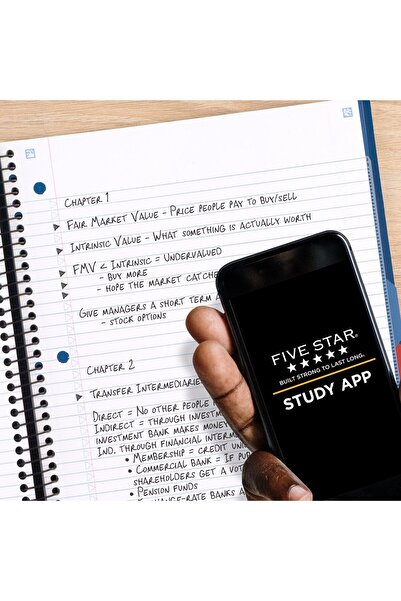 CHAPTER 1
FAIR MARKET VALUE - PRICE PEOPLE PAY TO BUY/SELL
INTRINSIC VALUE - WHAT SOMETHING IS ACTUALLY WORTH
FMV < INTRINSIC = UNDERVALUED
- BUY MORE
- HOPE THE MARKET CATCHE
GIVE MANAGERS A SHORT TERM
- STOCK OPTIONS
CHAPTER 2
TRANSFER INTERMEDIARIE
DIRECT = NO OTHER PEOPLE
INDIRECT = THROUGH INVEST
INVESTMENT BANK MAKES MONEY
IND. THROUGH FINANCIAL INTERM
• MEMBERSHIP = CREDIT UN
• COMMERCIAL BANK = IF PU
SHAREHOLDERS GET A VOT
• PENSION FUNDS
-RATE BANKS
FIVE STAR®
★★★★★
BUILT STRONG TO LAST LONG.
STUDY APP